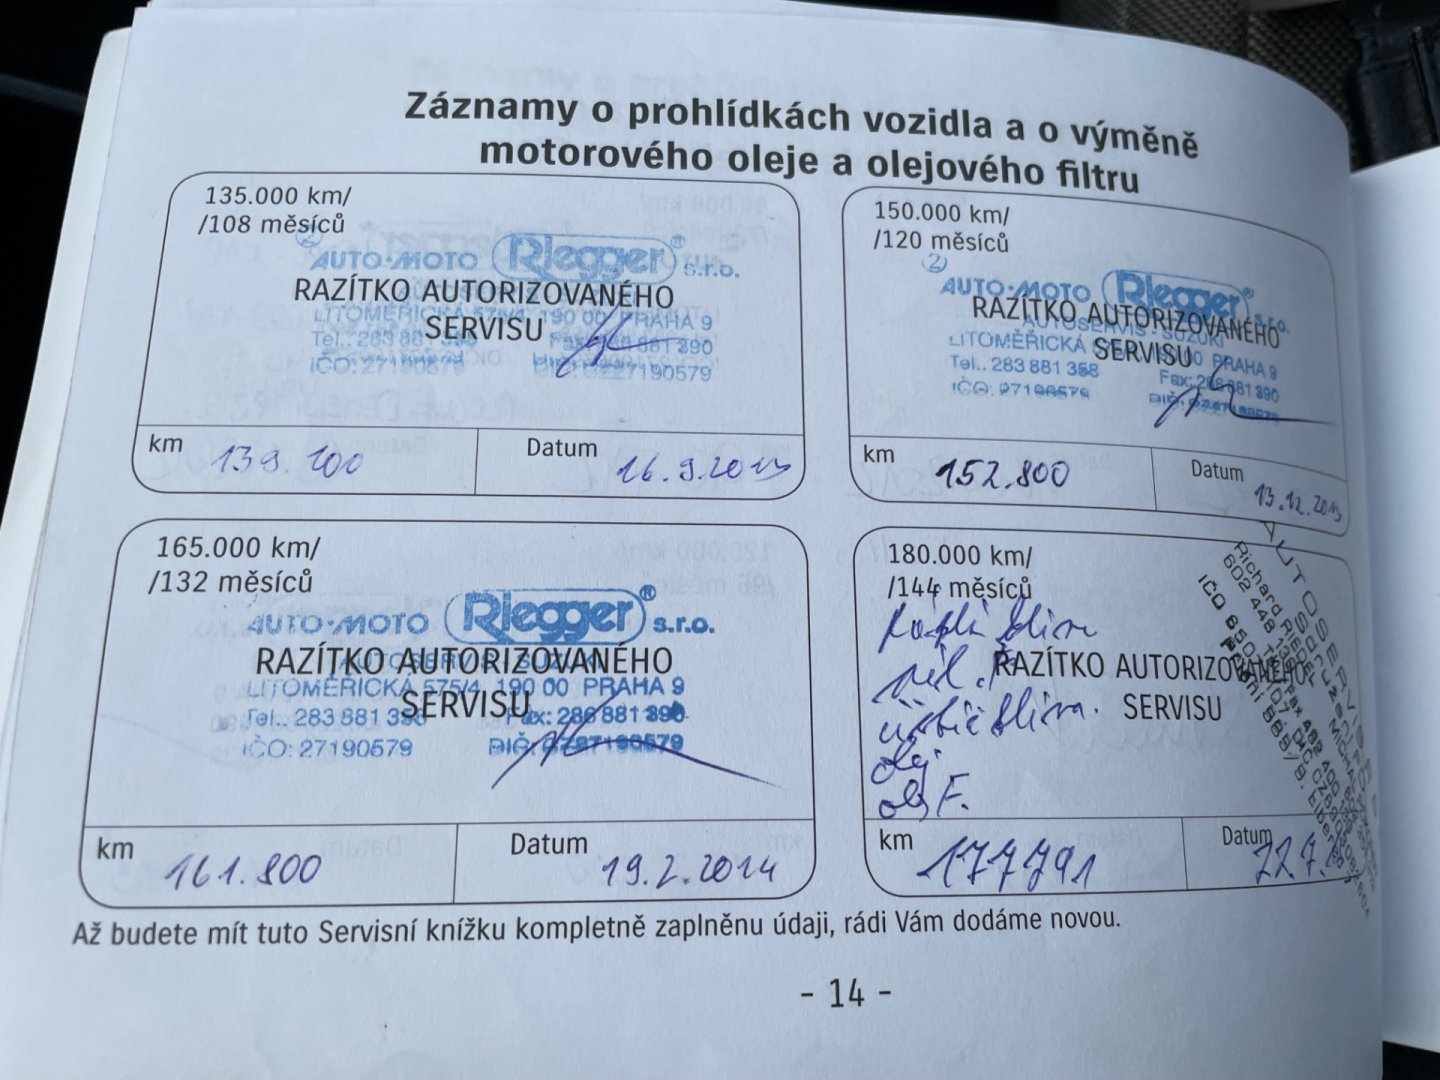 Záznamy o prohlídkách vozidla a o výměně
motorového oleje a olejového filtru
135.000 km/
/108 měsíců
2
AUTO-MOTO Rlegger® s.r.o.
RAZÍTKO AUTORIZOVANÉHO
LITOMĚŘICKÁ 575/4, 190 00 PRAHA 9
SERVISU
Tel.: 283 881 Fax: 881 390
IČO: 27190579 DIČ: CZ27190579
km 139.100
Datum 16.9.2013
150.000 km/
/120 měsíců
2
AUTO-MOTO Rlegger® s.r.o.
RAZÍTKO AUTORIZOVANÉHO
AUTOSERVIS SUZUKI
LITOMĚŘICKÁ 00 PRAHA 9
SERVISU
Tel.: 283 881 358 Fax: 286 881 390
IČO: 27190579 DIČ: CZ27190579
km 152.800
Datum 13.12.2013
165.000 km/
/132 měsíců
AUTO-MOTO Rlegger® s.r.o.
RAZÍTKO AUTORIZOVANÉHO
AUTOSERVIS SUZUKI
LITOMĚŘICKÁ 575/4, 190 00 PRAHA 9
SERVISU
Tel.: 283 881 358 Fax: 286 881 390
IČO: 27190579 DIČ: CZ27190579
km 161.800
Datum 19.2.2014
180.000 km/
/144 měsíců
RAZÍTKO AUTORIZOVANÉHO
SERVISU
olej
ol F.
AUTOSERVIS
Richard
602 448
IČO
km 177791
Datum 22.7.
Až budete mít tuto Servisní knížku kompletně zaplněnu údaji, rádi Vám dodáme novou.
- 14 -